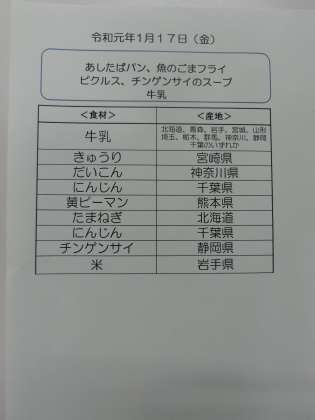 令和元年1月17日（金）
あしたばパン、魚のごまフライ
ピクルス、チンゲンサイのスープ
牛乳
＜食材＞ ＜産地＞
牛乳 北海道、青森、岩手、宮城、山形
埼玉、栃木、群馬、神奈川、静岡
千葉のいずれか
きゅうり 宮崎県
だいこん 神奈川県
にんじん 千葉県
黄ピーマン 熊本県
たまねぎ 北海道
にんじん 千葉県
チンゲンサイ 静岡県
米 岩手県